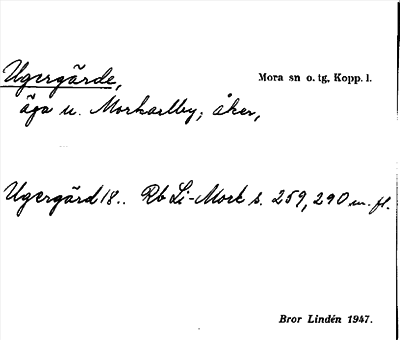 Ugergärde, Mora sn o. tg, Kopp. l.
äga u. Morkarlby; åker,
Ugergärd 18.. Rb Li-Mork s. 259, 290 m. fl.
Bror Lindén 1947.